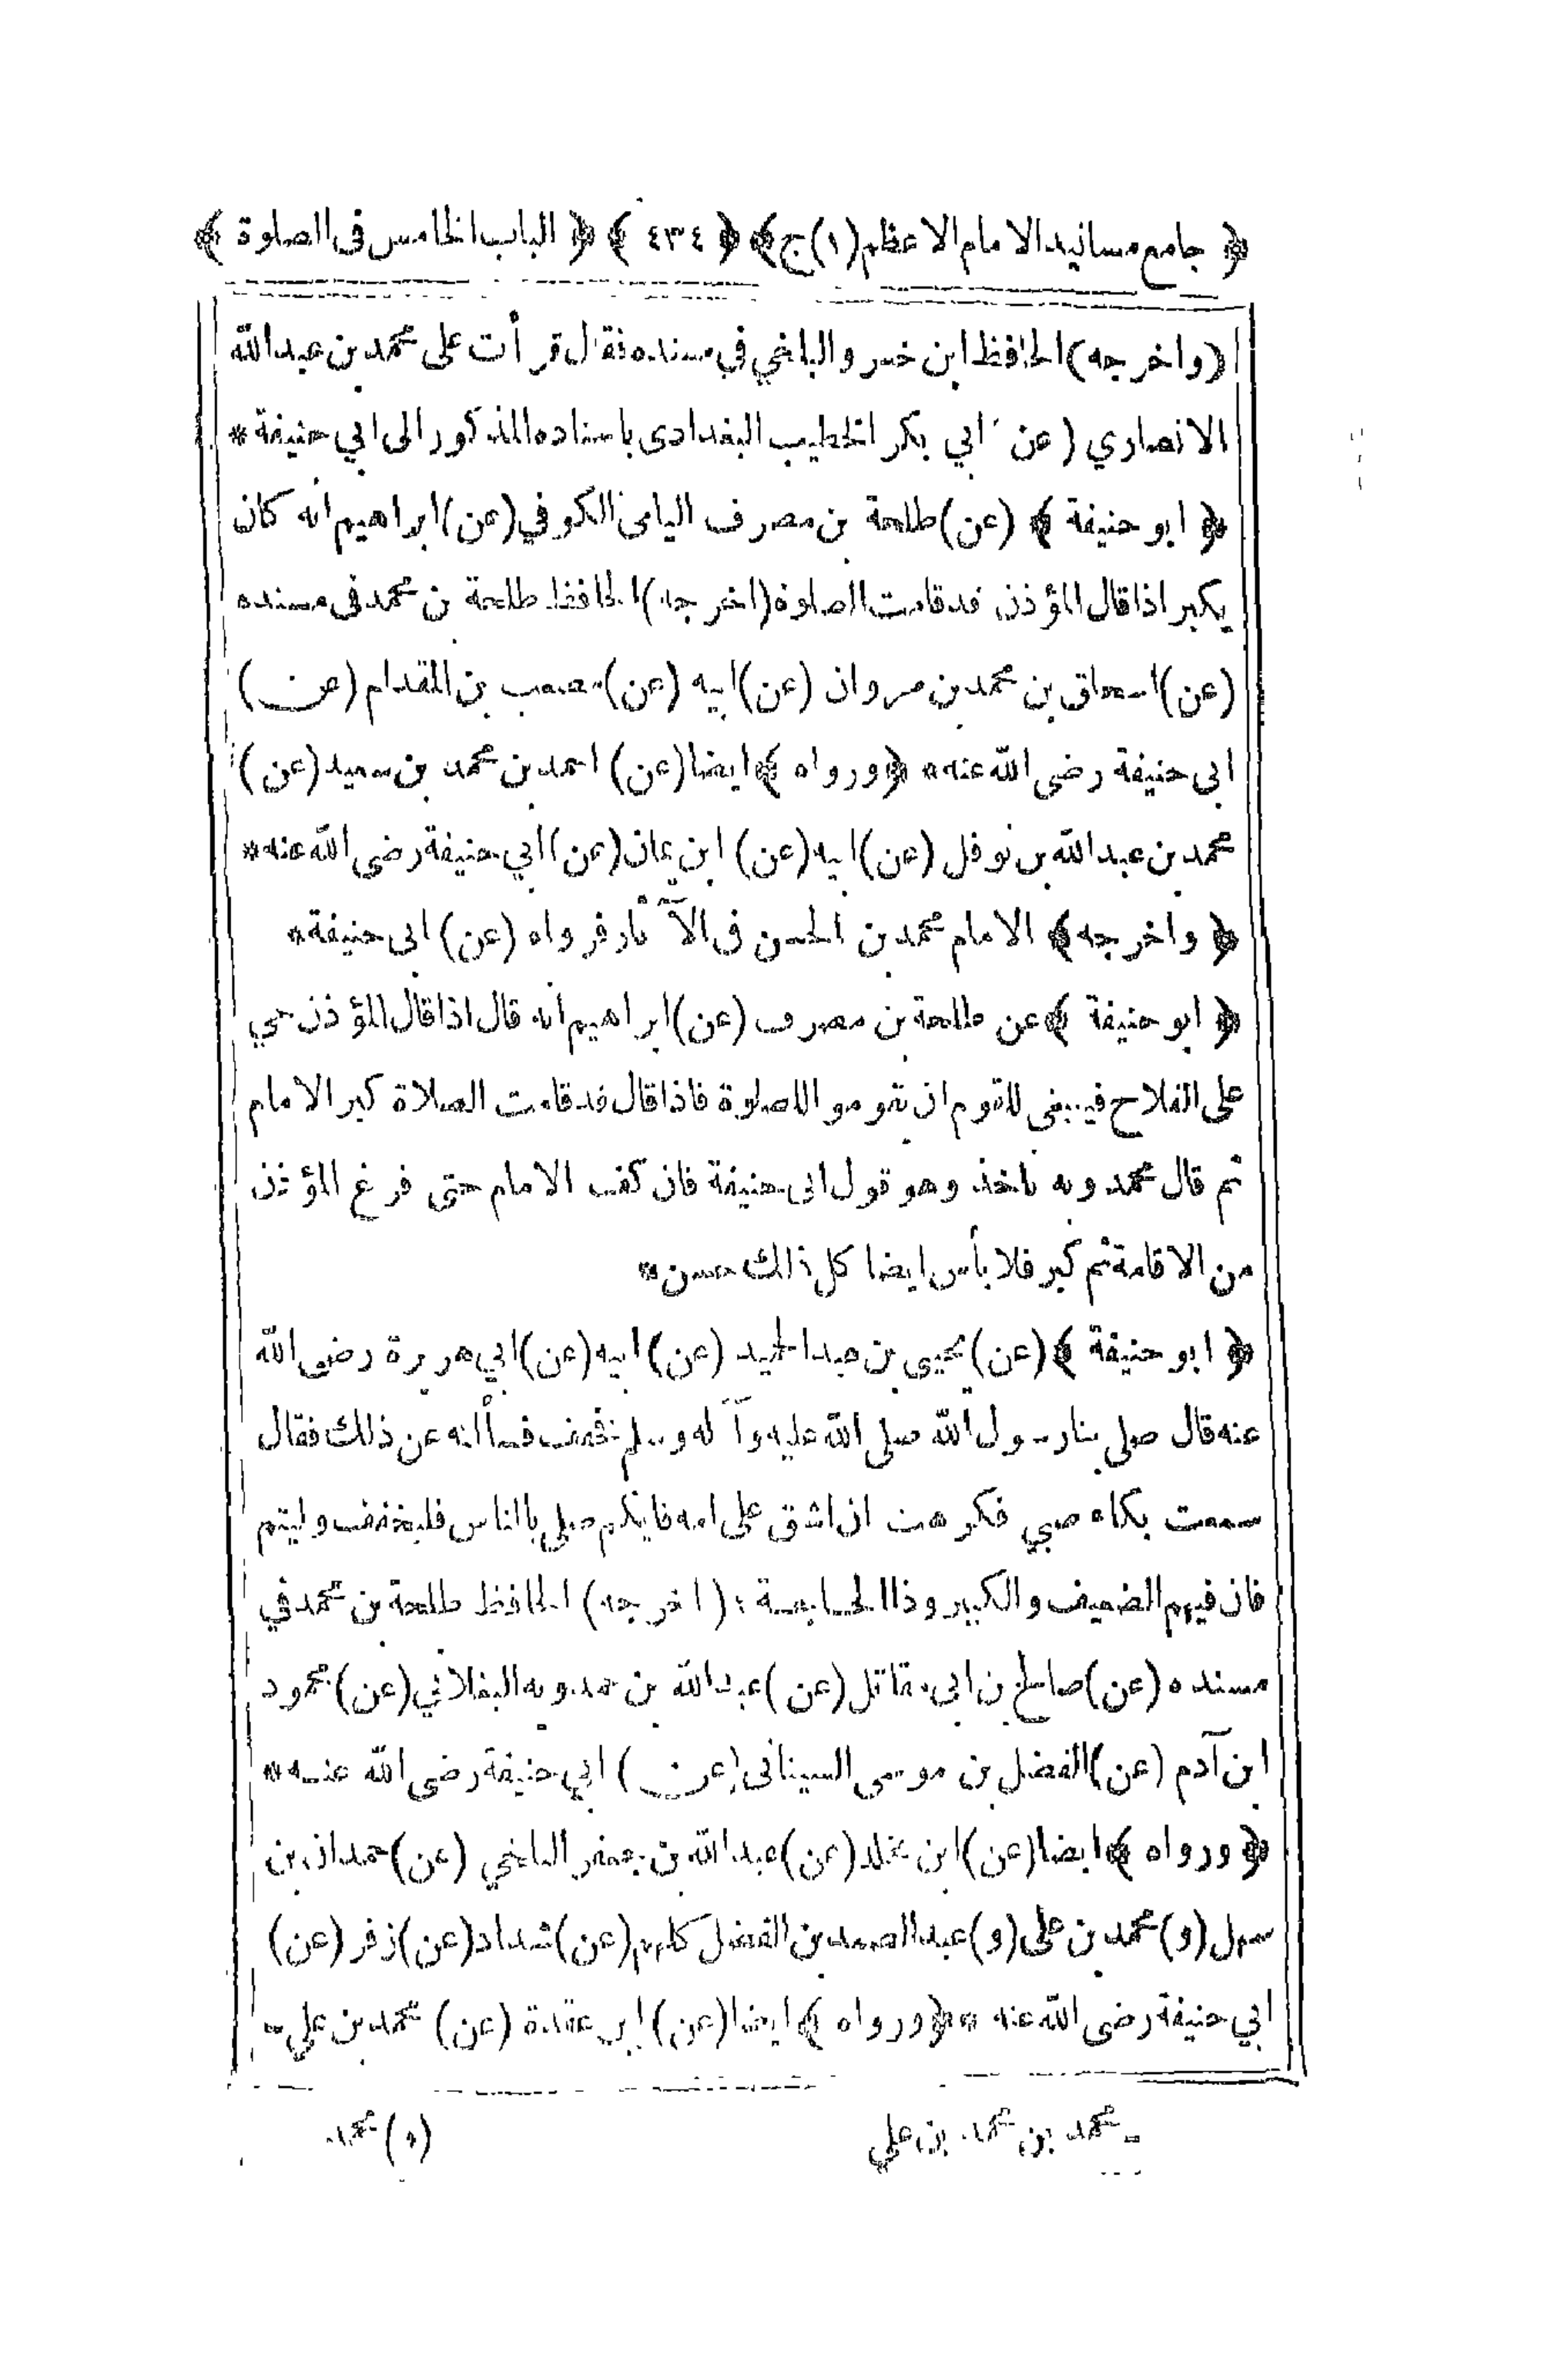 ﴿ جامع مسانيد الامام الاعظم (١) ج ﴾ ﴿ ٤٣٤ ﴾ ﴿ الباب الخامس فى الصلوة ﴾
(واخرجه) الحافظ ابن خسرو البلخي في مسنده فقال قرأت على محمد بن عبدالله
الانصاري (عن ابي بكر الخطيب البغدادى باسناده المذكور الى ابي حنيفة *
﴿ ابو حنيفة ﴾ (عن) طلحة بن مصرف اليامى الكوفي (عن) ابراهيم انه كان
يكبر اذا قال المؤذن قد قامت الصلوة (اخرجه) الحافظ طلحة بن محمد فى مسنده
(عن) اسحاق بن محمد بن مروان (عن) ابيه (عن) مصعب بن المقدام (عن)
ابى حنيفة رضى الله عنه * ﴿ ورواه ﴾ ايضا (عن) احمد بن محمد بن سعيد (عن)
محمد بن عبدالله بن نوفل (عن) ابيه (عن) ابن يمان (عن) ابي حنيفة رضى الله عنه *
﴿ واخرجه ﴾ الامام محمد بن الحسن فى الآثار فرواه (عن) ابى حنيفة *
﴿ ابو حنيفة ﴾ عن طلحة بن مصرف (عن) ابراهيم انه قال اذا قال المؤذن حي
على الفلاح فينبغى للقوم ان يقوموا للصلوة فاذا قال قد قامت الصلاة كبر الامام
ثم قال محمد وبه ناخذ وهو قول ابى حنيفة فان كف الامام حتى فرغ المؤذن
من الاقامة ثم كبر فلا بأس ايضا كل ذلك حسن *
﴿ ابو حنيفة ﴾ (عن) يحيى بن عبدالحميد (عن) ابيه (عن) ابي هريرة رضى الله
عنه قال صلى بنا رسول الله صلى الله عليه وآله وسلم فخفف فسألنه عن ذلك فقال
سمعت بكاء صبي فكرهت ان اشق على امه فايكم صلى بالناس فليخفف وليتم
فان فيهم الضعيف والكبير وذا الحاجة : (اخرجه) الحافظ طلحة بن محمد في
مسنده (عن) صالح بن ابى مقاتل (عن) عبدالله بن حمدويه البغلاني (عن) محمود
ابن آدم (عن) الفضل بن موسى السينانى (عن) ابي حنيفة رضى الله عنه *
﴿ ورواه ﴾ ايضا (عن) ابن مخلد (عن) عبدالله بن جعفر البلخي (عن) حمدان بن
سهل (و) محمد بن على (و) عبدالصمد بن الفضل كلهم (عن) شداد (عن) زفر (عن)
ابي حنيفة رضى الله عنه * ﴿ ورواه ﴾ ايضا (عن) ابن عقدة (عن) محمد بن علي -
- محمد بن محمد بن علي (و) محمد